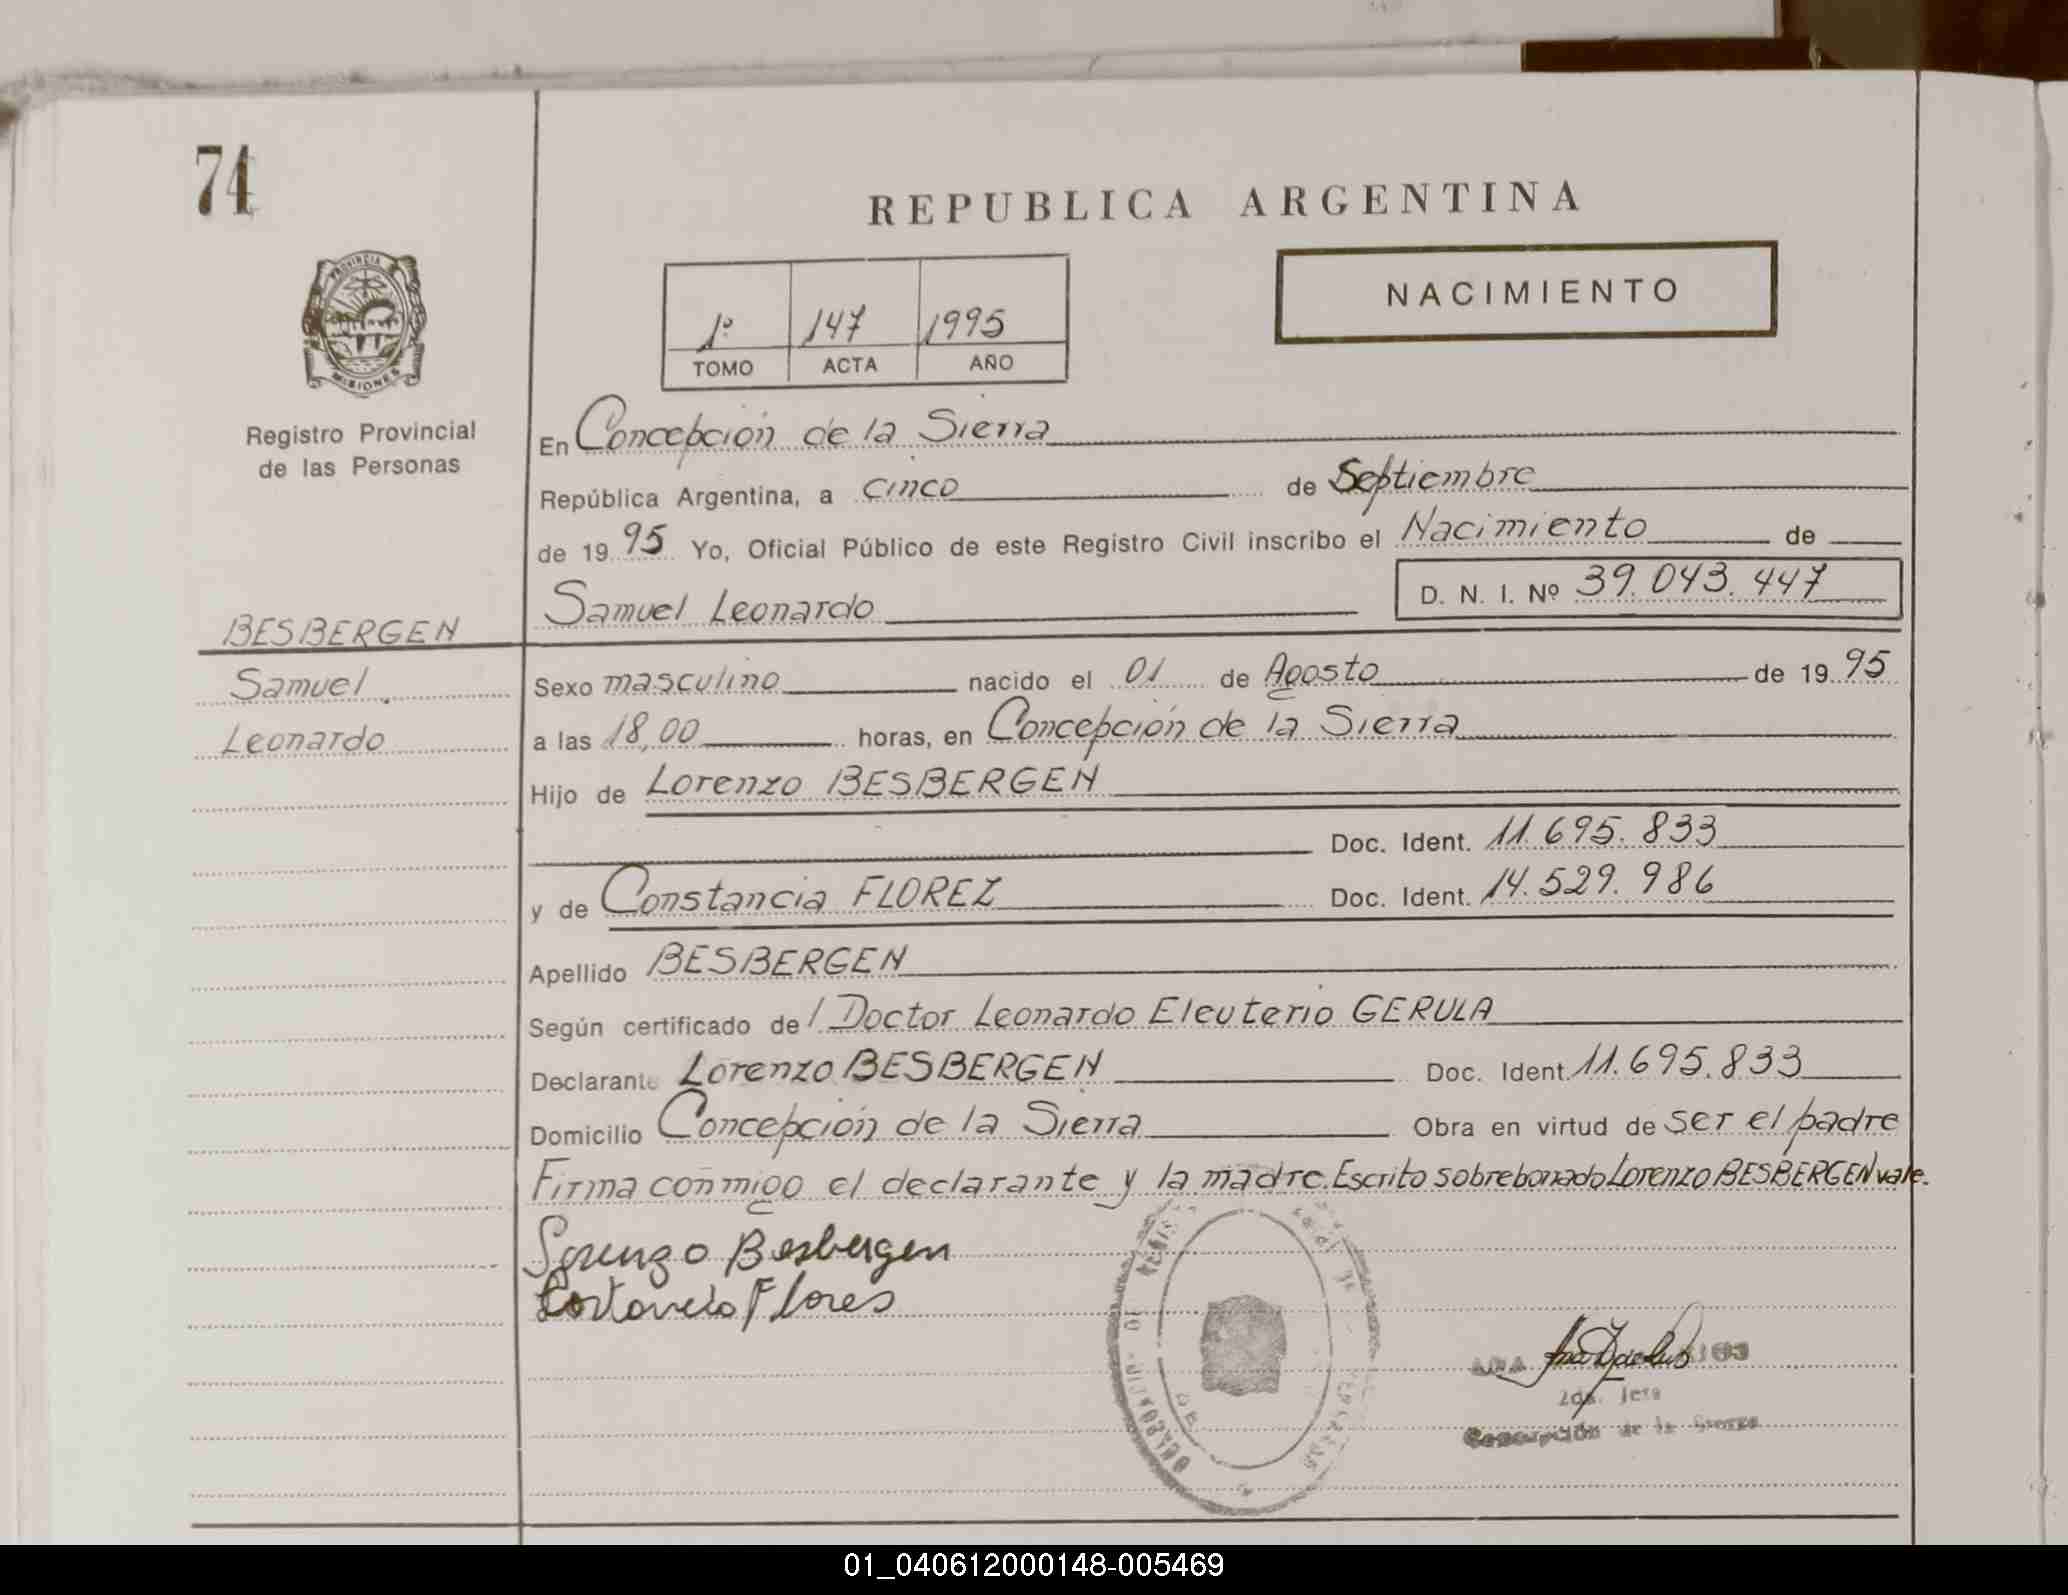 74
REPUBLICA ARGENTINA
PROVINCIA
MISIONES
Registro Provincial
de las Personas
1º 147 1995
TOMO ACTA AÑO
NACIMIENTO
En Concepción de la Sierra
República Argentina, a cinco de Septiembre
de 1995 Yo, Oficial Público de este Registro Civil inscribo el Nacimiento de
Samuel Leonardo D. N. I. Nº 39.043.447
BESBERGEN
Samuel
Leonardo
Sexo masculino nacido el 01 de Agosto de 1995
a las 18,00 horas, en Concepción de la Sierra
Hijo de Lorenzo BESBERGEN
Doc. Ident. 11.695.833
y de Constancia FLOREZ Doc. Ident. 14.529.986
Apellido BESBERGEN
Según certificado de/ Doctor Leonardo Eleuterio GERULA
Declarante Lorenzo BESBERGEN Doc. Ident. 11.695.833
Domicilio Concepción de la Sierra Obra en virtud de ser el padre
Firma conmigo el declarante y la madre. Escrito sobreborrado Lorenzo BESBERGEN vale.
Lorenzo Besbergen
Flores
2da. Jefa
Concepción de la Sierra
01_040612000148-005469